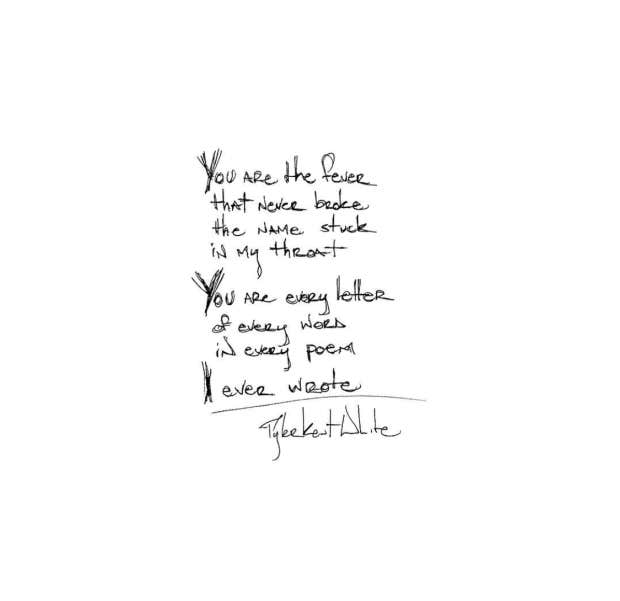 You are the fever
that never broke
the name stuck
in my throat
You are every letter
of every word
in every poem
I ever wrote
Tyler Kent White